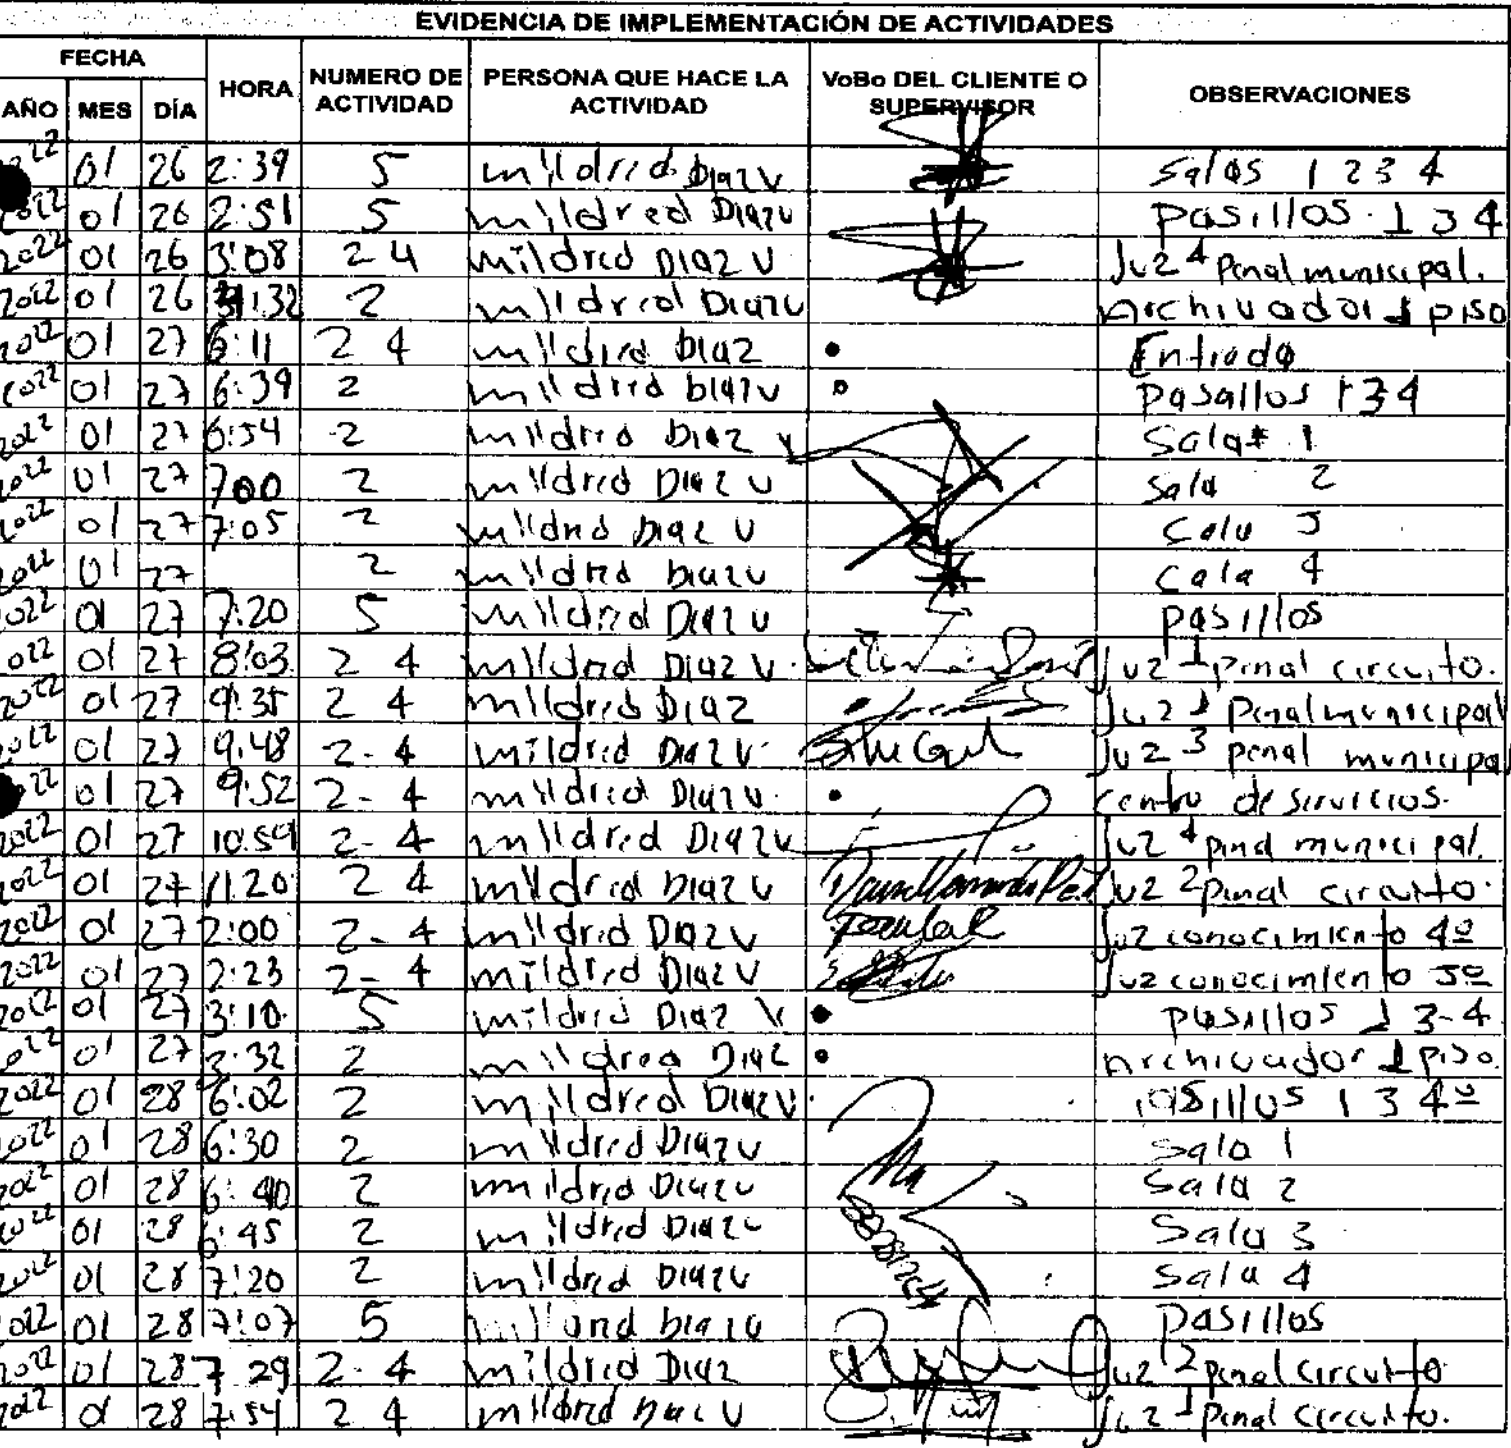 EVIDENCIA DE IMPLEMENTACIÓN DE ACTIVIDADES
FECHA HORA NUMERO DE ACTIVIDAD PERSONA QUE HACE LA ACTIVIDAD VoBo DEL CLIENTE O SUPERVISOR OBSERVACIONES
AÑO MES DÍA
2022 01 26 2:39 5 mildred Diaz V Salas 1 2 3 4
2022 01 26 2:51 5 mildred Diaz V Pasillos 1 3 4
2022 01 26 3:08 2 4 mildred Diaz V Juz 4 Penal municipal.
2022 01 26 :32 2 mildred Diaz V Archivador 1 piso
2022 01 27 6:11 2 4 mildred Diaz Entrada
2022 01 27 6:39 2 mildred Diaz V Pasallos 1 3 4
2022 01 27 6:54 2 mildred Diaz V Sala # 1
2022 01 27 7:00 2 mildred Diaz V Sala 2
2022 01 27 7:05 2 mildred Diaz V Cala 3
2022 01 27 2 mildred Diaz V Cala 4
2022 01 27 7:20 5 mildred Diaz V Pasillos
2022 01 27 8:03 2 4 mildred Diaz V. Juz 1 Penal circuito.
2022 01 27 9:35 2 4 mildred Diaz Juz 1 Penal municipal
2022 01 27 9:48 2-4 mildred Diaz V. Juz 3 penal municipal
2022 01 27 9:52 2-4 mildred Diaz V. Centro de servicios.
2022 01 27 10:59 2-4 mildred Diaz V Juz 4 penal municipal.
2022 01 27 11:20 2 4 mildred Diaz V Juz 2 Penal circuito.
2022 01 27 2:00 2-4 mildred Diaz V Juz conocimiento 4º
2022 01 27 2:23 2-4 mildred Diaz V Juz conocimiento 5º
2022 01 27 3:10 5 mildred Diaz V Pasillos 1 3-4
2022 01 27 3:32 2 mildred Diaz Archivador 1 piso.
2022 01 28 6:02 2 mildred Diaz V. Pasillos 1 3 4º
2022 01 28 6:30 2 mildred Diaz V Sala 1
2022 01 28 6:40 2 mildred Diaz V Sala 2
2022 01 28 6:45 2 mildred Diaz V Sala 3
2022 01 28 7:20 2 mildred Diaz V Sala 4
2022 01 28 7:07 5 mildred Diaz V Pasillos
2022 01 28 7 29 2-4 mildred Diaz Juz 2 Penal circuito
2022 01 28 7:54 2 4 mildred Diaz V Juz 1 Penal circuito.